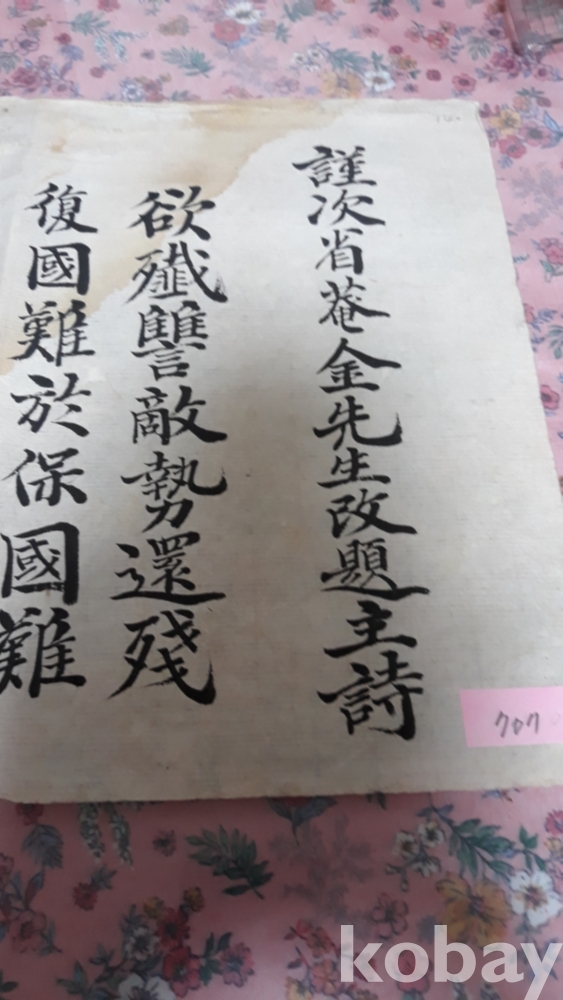 謹次省菴金先生改題主詩
欲殲讐敵勢還殘
復國難於保國難
707
kobay